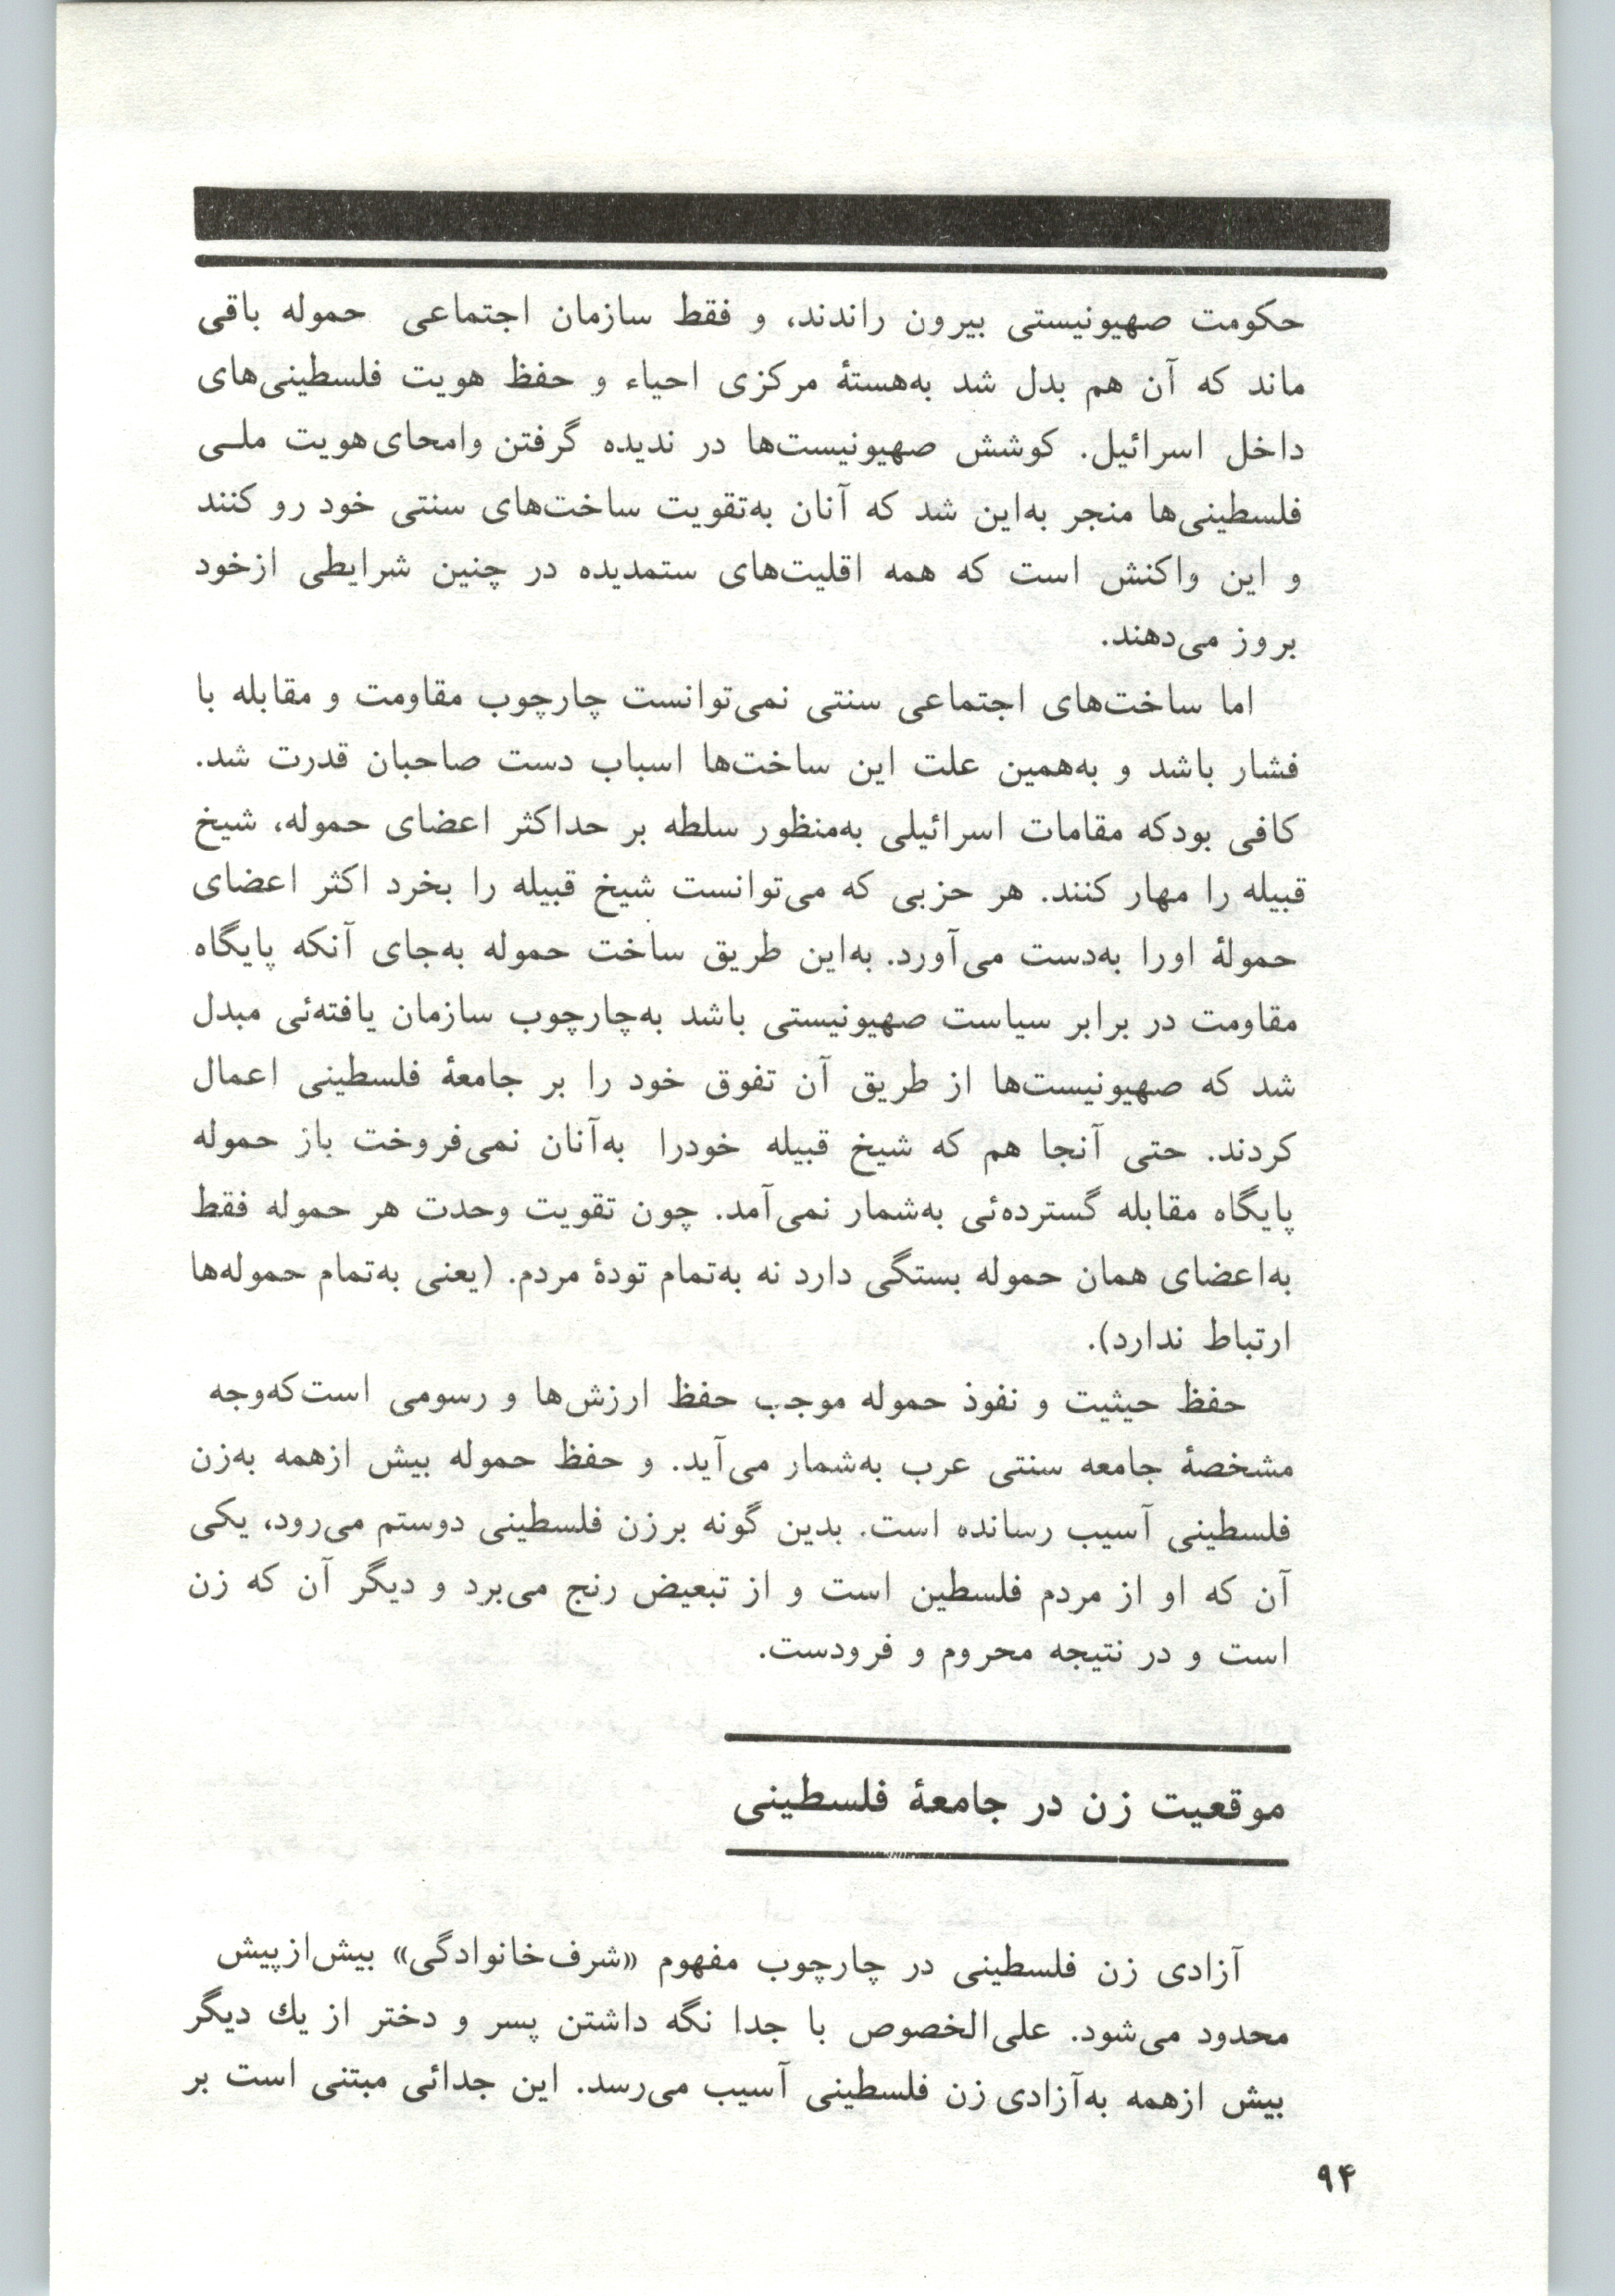 حکومت صهیونیستی بیرون راندند، و فقط سازمان اجتماعی حموله باقی
ماند که آن هم بدل شد به‌هستهٔ مرکزی احیاء و حفظ هویت فلسطینی‌های
داخل اسرائیل. کوشش صهیونیست‌ها در ندیده گرفتن وامحای‌هویت ملی
فلسطینی‌ها منجر به‌این شد که آنان به‌تقویت ساخت‌های سنتی خود رو کنند
و این واکنش است که همه اقلیت‌های ستمدیده در چنین شرایطی ازخود
بروز می‌دهند.
اما ساخت‌های اجتماعی سنتی نمی‌توانست چارچوب مقاومت و مقابله با
فشار باشد و به‌همین علت این ساخت‌ها اسباب دست صاحبان قدرت شد.
کافی بودکه مقامات اسرائیلی به‌منظور سلطه بر حداکثر اعضای حموله، شیخ
قبیله را مهار کنند. هر حزبی که می‌توانست شیخ قبیله را بخرد اکثر اعضای
حمولهٔ اورا به‌دست می‌آورد. به‌این طریق ساخت حموله به‌جای آنکه پایگاه
مقاومت در برابر سیاست صهیونیستی باشد به‌چارچوب سازمان یافته‌ئی مبدل
شد که صهیونیست‌ها از طریق آن تفوق خود را بر جامعهٔ فلسطینی اعمال
کردند. حتی آنجا هم که شیخ قبیله خودرا به‌آنان نمی‌فروخت باز حموله
پایگاه مقابله گسترده‌ئی به‌شمار نمی‌آمد. چون تقویت وحدت هر حموله فقط
به‌اعضای همان حموله بستگی دارد نه به‌تمام تودهٔ مردم. (یعنی به‌تمام حموله‌ها
ارتباط ندارد).
حفظ حیثیت و نفوذ حموله موجب حفظ ارزش‌ها و رسومی است‌که‌وجه
مشخصهٔ جامعه سنتی عرب به‌شمار می‌آید. و حفظ حموله بیش ازهمه به‌زن
فلسطینی آسیب رسانده است. بدین گونه برزن فلسطینی دوستم می‌رود، یکی
آن که او از مردم فلسطین است و از تبعیض رنج می‌برد و دیگر آن که زن
است و در نتیجه محروم و فرودست.
موقعیت زن در جامعهٔ فلسطینی
آزادی زن فلسطینی در چارچوب مفهوم «شرف‌خانوادگی» بیش‌ازپیش
محدود می‌شود. علی‌الخصوص با جدا نگه داشتن پسر و دختر از یك دیگر
بیش ازهمه به‌آزادی زن فلسطینی آسیب می‌رسد. این جدائی مبتنی است بر
۹۴